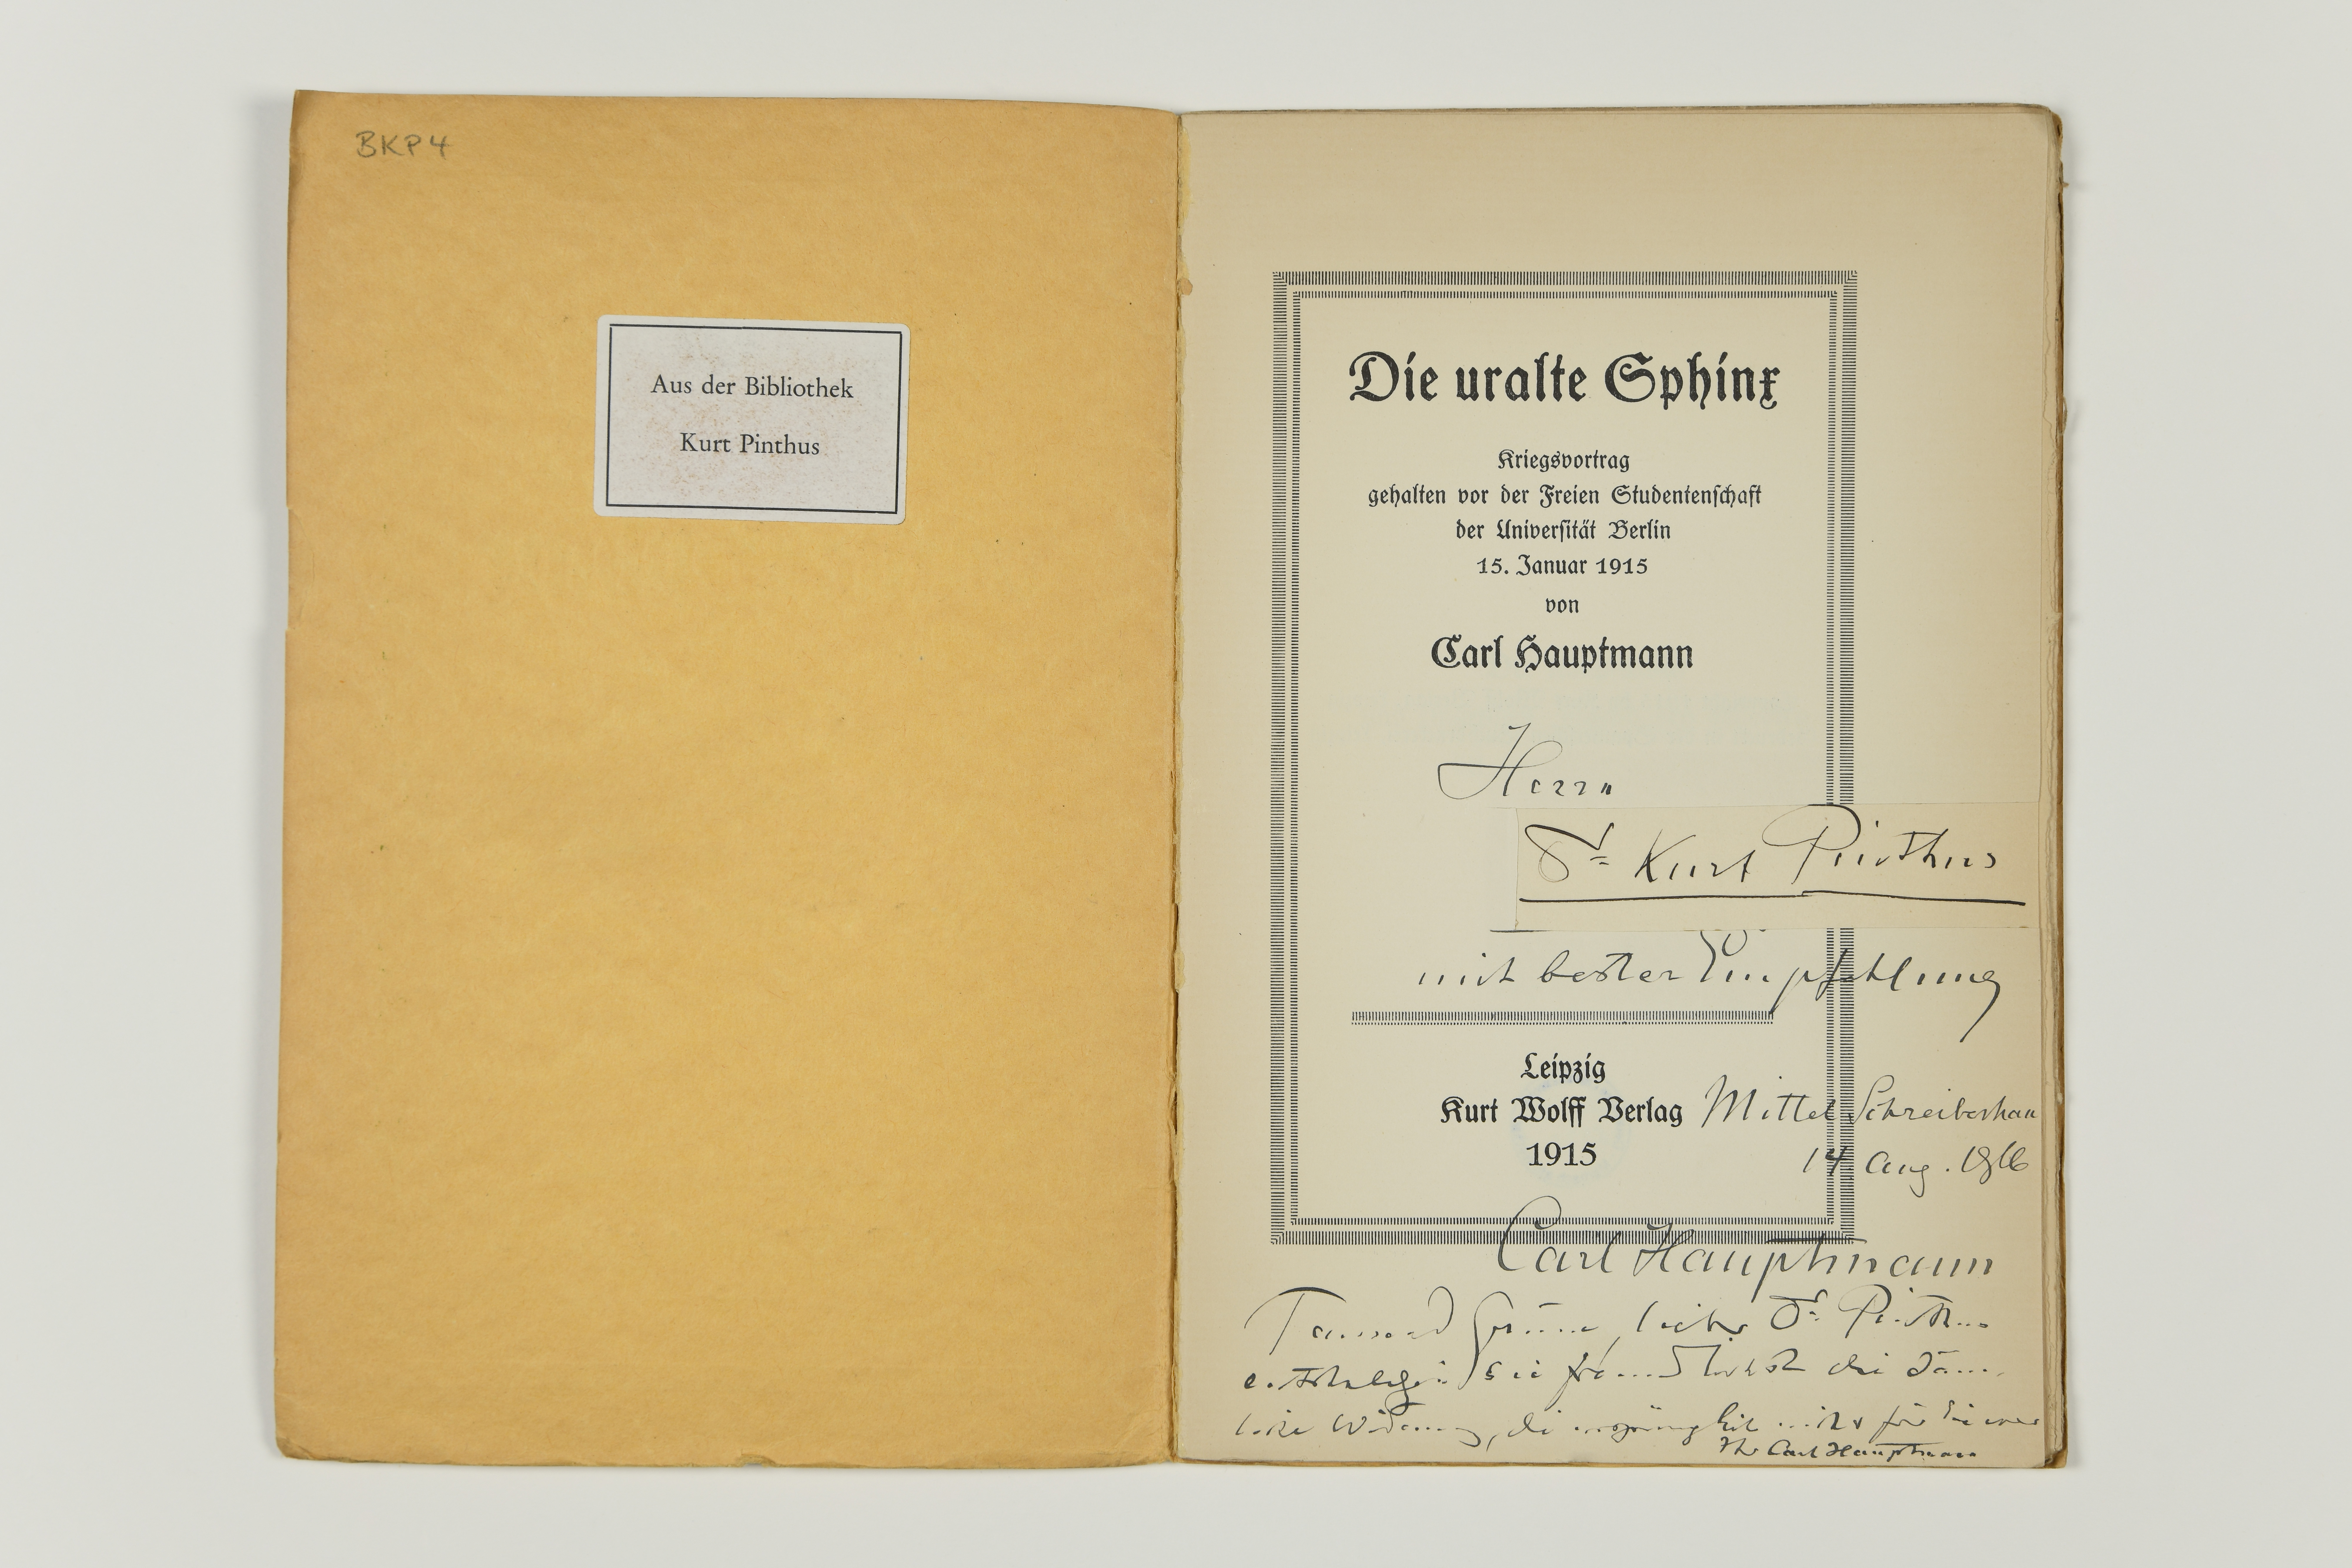 BKP4
Aus der Bibliothek
Kurt Pinthus
Die uralte Sphinx
Kriegsvortrag
gehalten vor der Freien Studentenschaft
der Universität Berlin
15. Januar 1915
von
Carl Hauptmann
Herrn
Dr Kurt Pinthus
mit bester Empfehlung
Leipzig
Kurt Wolff Verlag
1915
Mittel Schreiberhau
14 Aug. 1916
Carl Hauptmann
Tausend Grüsse, lieber Dr Pinthus
entschuldigen Sie die
Widmung, die ursprünglich nicht für Sie war
Ihr Carl Hauptmann